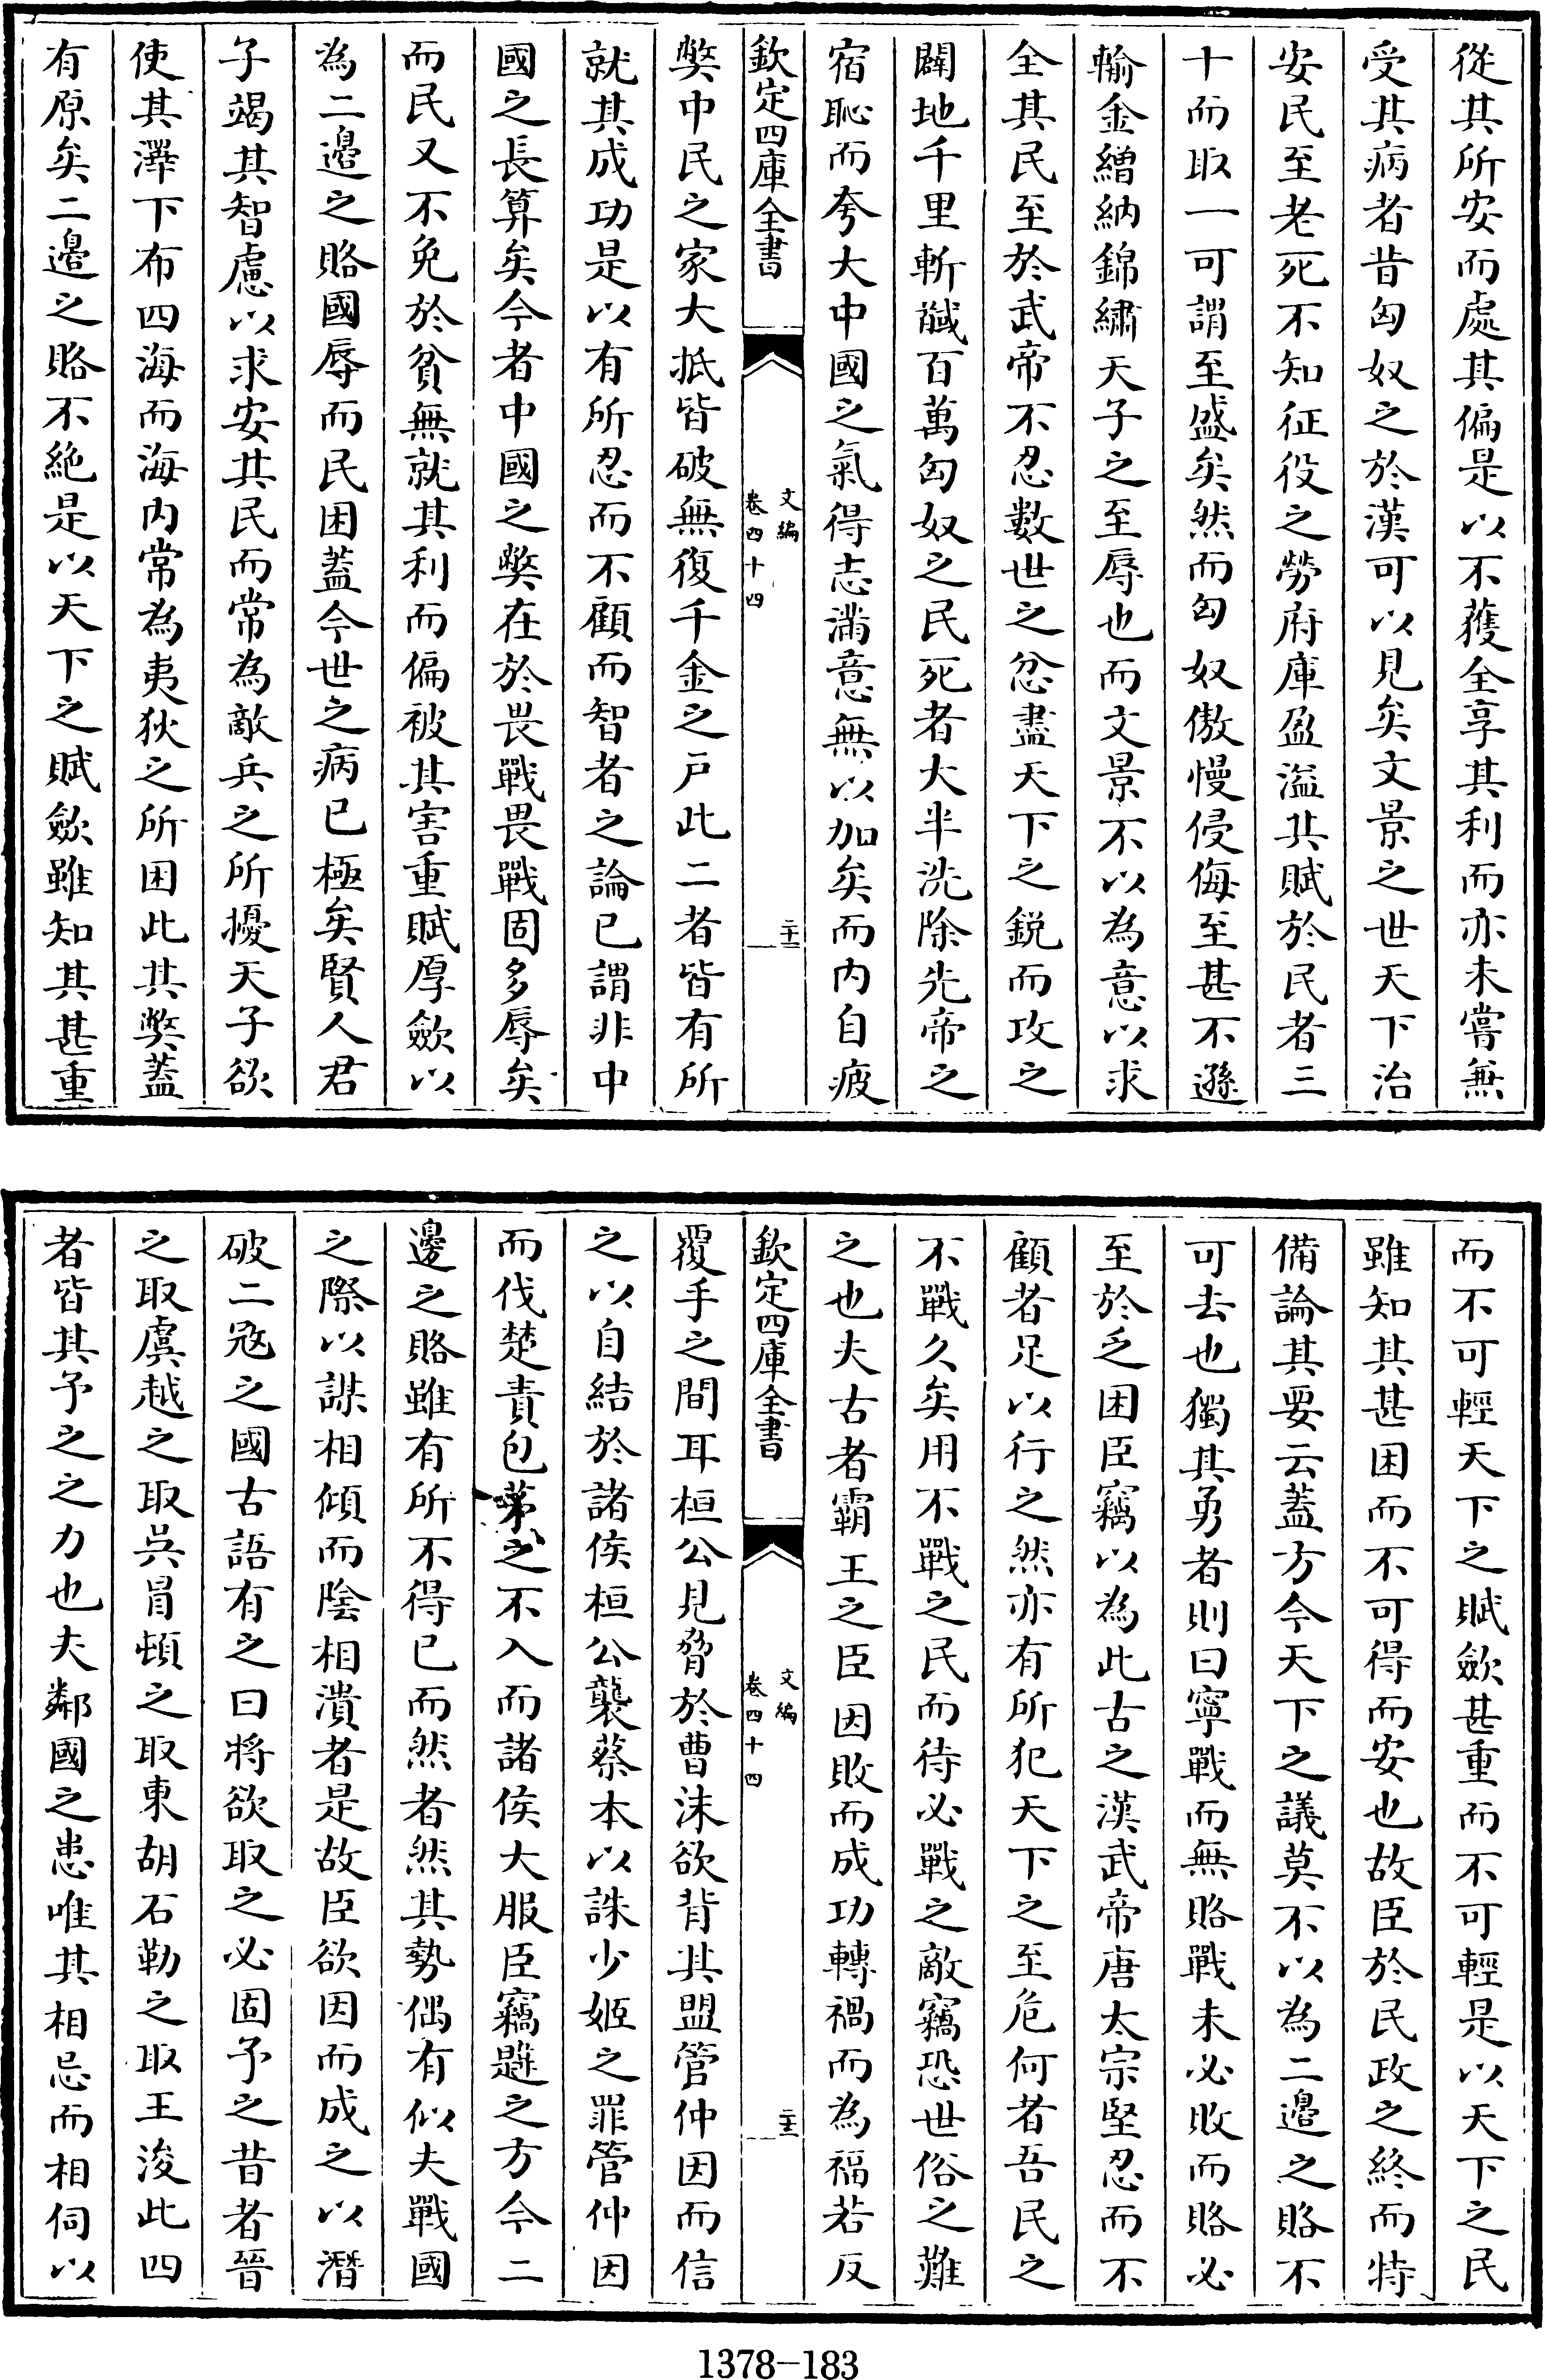 從其所安而處其偏是以不獲全享其利而亦未嘗無
受其病者昔匈奴之於漢可以見矣文景之世天下治
安民至老死不知征役之勞府庫盈溢其賦於民者三
十而取一可謂至盛矣然而匈奴傲慢侵侮至甚不遜
輸金繒納錦繡天子之至辱也而文景不以為意以求
全其民至於武帝不忍數世之忿盡天下之鋭而攻之
闢地千里斬馘百萬匈奴之民死者大半洗除先帝之
宿恥而夸大中國之氣得志滿意無以加矣而内自疲
欽定四庫全書
文編
卷四十四
二十二
弊中民之家大抵皆破無復千金之戸此二者皆有所
就其成功是以有所忍而不顧而智者之論已謂非中
國之長算矣今者中國之弊在於畏戰畏戰固多辱矣
而民又不免於貧無就其利而偏被其害重賦厚歛以
為二邉之賂國辱而民困葢今世之病已極矣賢人君
子竭其智慮以求安其民而常為敵兵之所擾天子欲
使其澤下布四海而海内常為夷狄之所困此其弊葢
有原矣二邉之賂不絶是以天下之賦歛雖知其甚重
而不可輕天下之賦歛甚重而不可輕是以天下之民
雖知其甚困而不可得而安也故臣於民政之終而特
備論其要云葢方今天下之議莫不以為二邉之賂不
可去也獨其勇者則曰寧戰而無賂戰未必敗而賂必
至於乏困臣竊以為此古之漢武帝唐太宗堅忍而不
顧者足以行之然亦有所犯天下之至危何者吾民之
不戰久矣用不戰之民而待必戰之敵竊恐世俗之難
之也夫古者霸王之臣因敗而成功轉禍而為福若反
欽定四庫全書
文編
卷四十四
二十三
覆手之間耳桓公見脅於曹沫欲背其盟管仲因而信
之以自結於諸侯桓公襲蔡本以誅少姬之罪管仲因
而伐楚責包茅之不入而諸侯大服臣竊韙之方今二
邊之賂雖有所不得已而然者然其勢偶有似夫戰國
之際以謀相傾而陰相潰者是故臣欲因而成之以潛
破二冦之國古語有之曰將欲取之必固予之昔者晉
之取虞越之取吳冒頓之取東胡石勒之取王浚此四
者皆其予之之力也夫鄰國之患唯其相忌而相伺以
1378-183